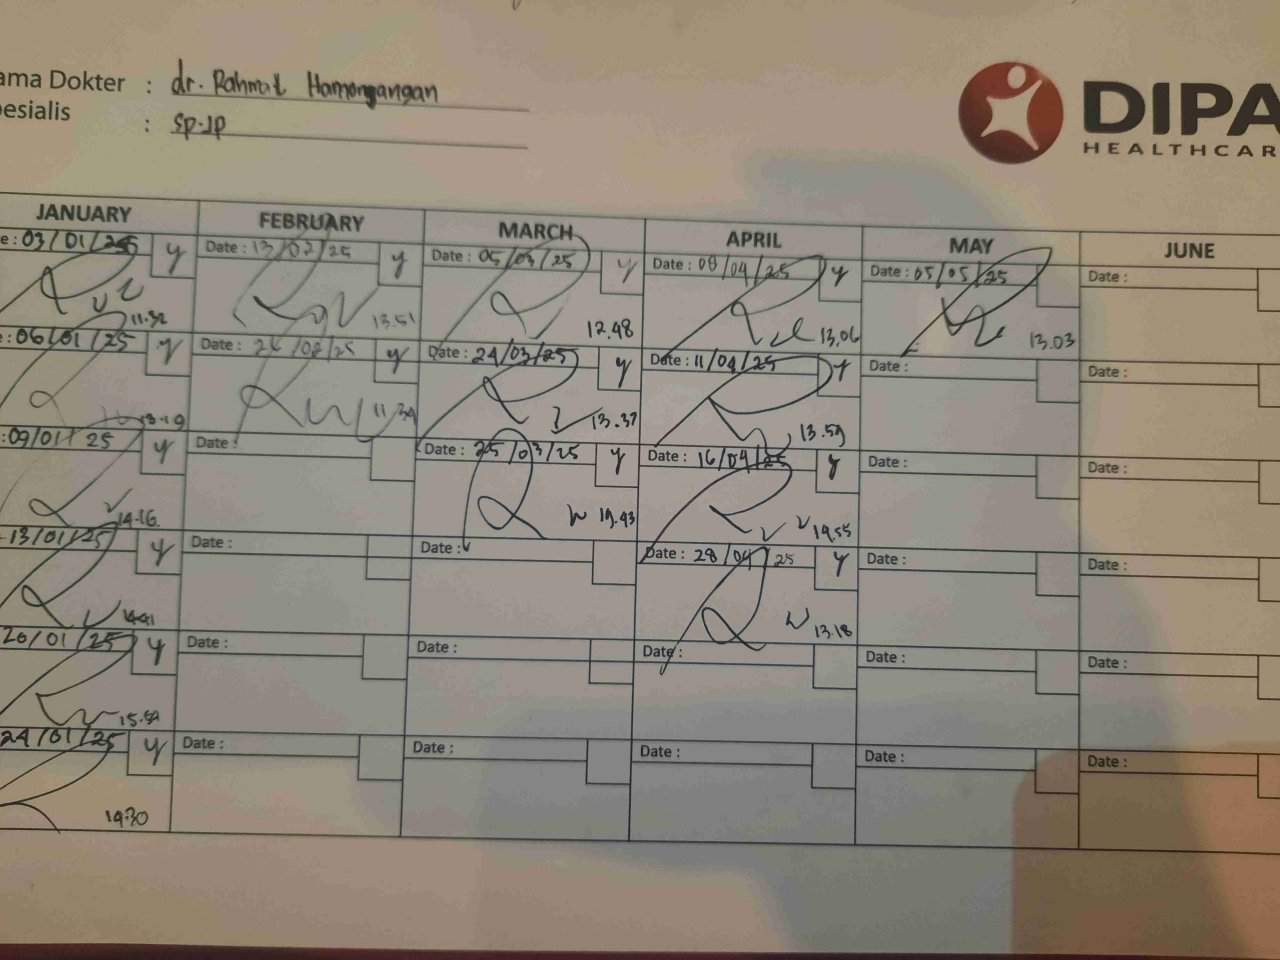 ama Dokter : dr. Rahmat Hamongangan
esialis : Sp.Jp
DIPA
HEALTHCAR
JANUARY FEBRUARY MARCH APRIL MAY JUNE
e : 03/01/25 y Date : 13/02/25 y Date : 05/03/25 y Date : 08/04/25 y Date : 05/05/25 Date :
11.32 13.51 12.48 13.06 13.03
e : 06/01/25 y Date : 26/02/25 y Date : 24/03/25 y Date : 11/04/25 y Date : Date :
13.19 11.39 13.37 13.59
: 09/01/25 y Date : Date : 25/03/25 y Date : 16/04/25 y Date : Date :
14.16 19.43 14.55
13/01/25 y Date : Date : Date : 28/04/25 y Date : Date :
14.41 13.18
20/01/25 y Date : Date : Date : Date : Date :
15.59
24/01/25 y Date : Date : Date : Date : Date :
14.30